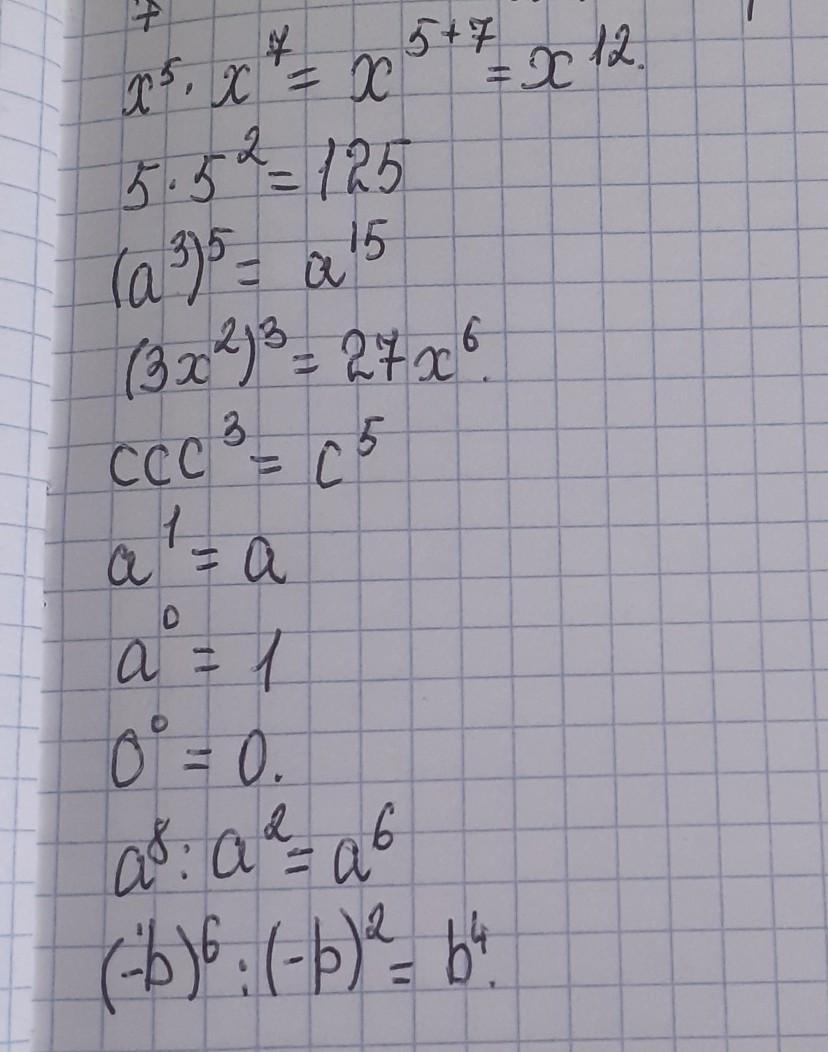 7
x⁵ · x⁷ = x⁵⁺⁷ = x¹².
5 · 5² = 125
(a³)⁵ = a¹⁵
(3x²)³ = 27x⁶.
ccc³ = c⁵
a¹ = a
a⁰ = 1
0⁰ = 0.
a⁸ : a² = a⁶
(-b)⁶ : (-b)² = b⁴.